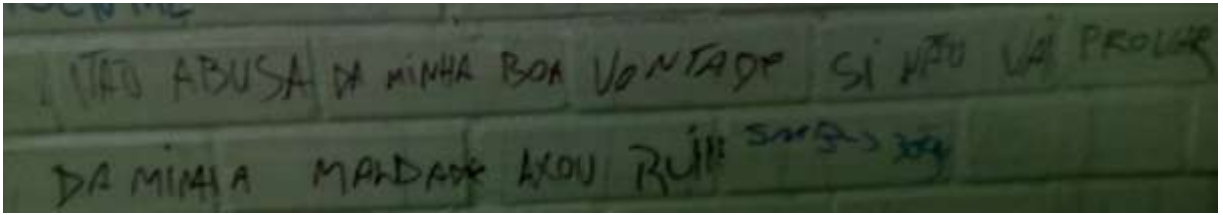 NÃO ABUSA DA MINHA BOA VONTADE SI NÃO VAI PROVAR
DA MINHA MALDADE AXOU RUIM